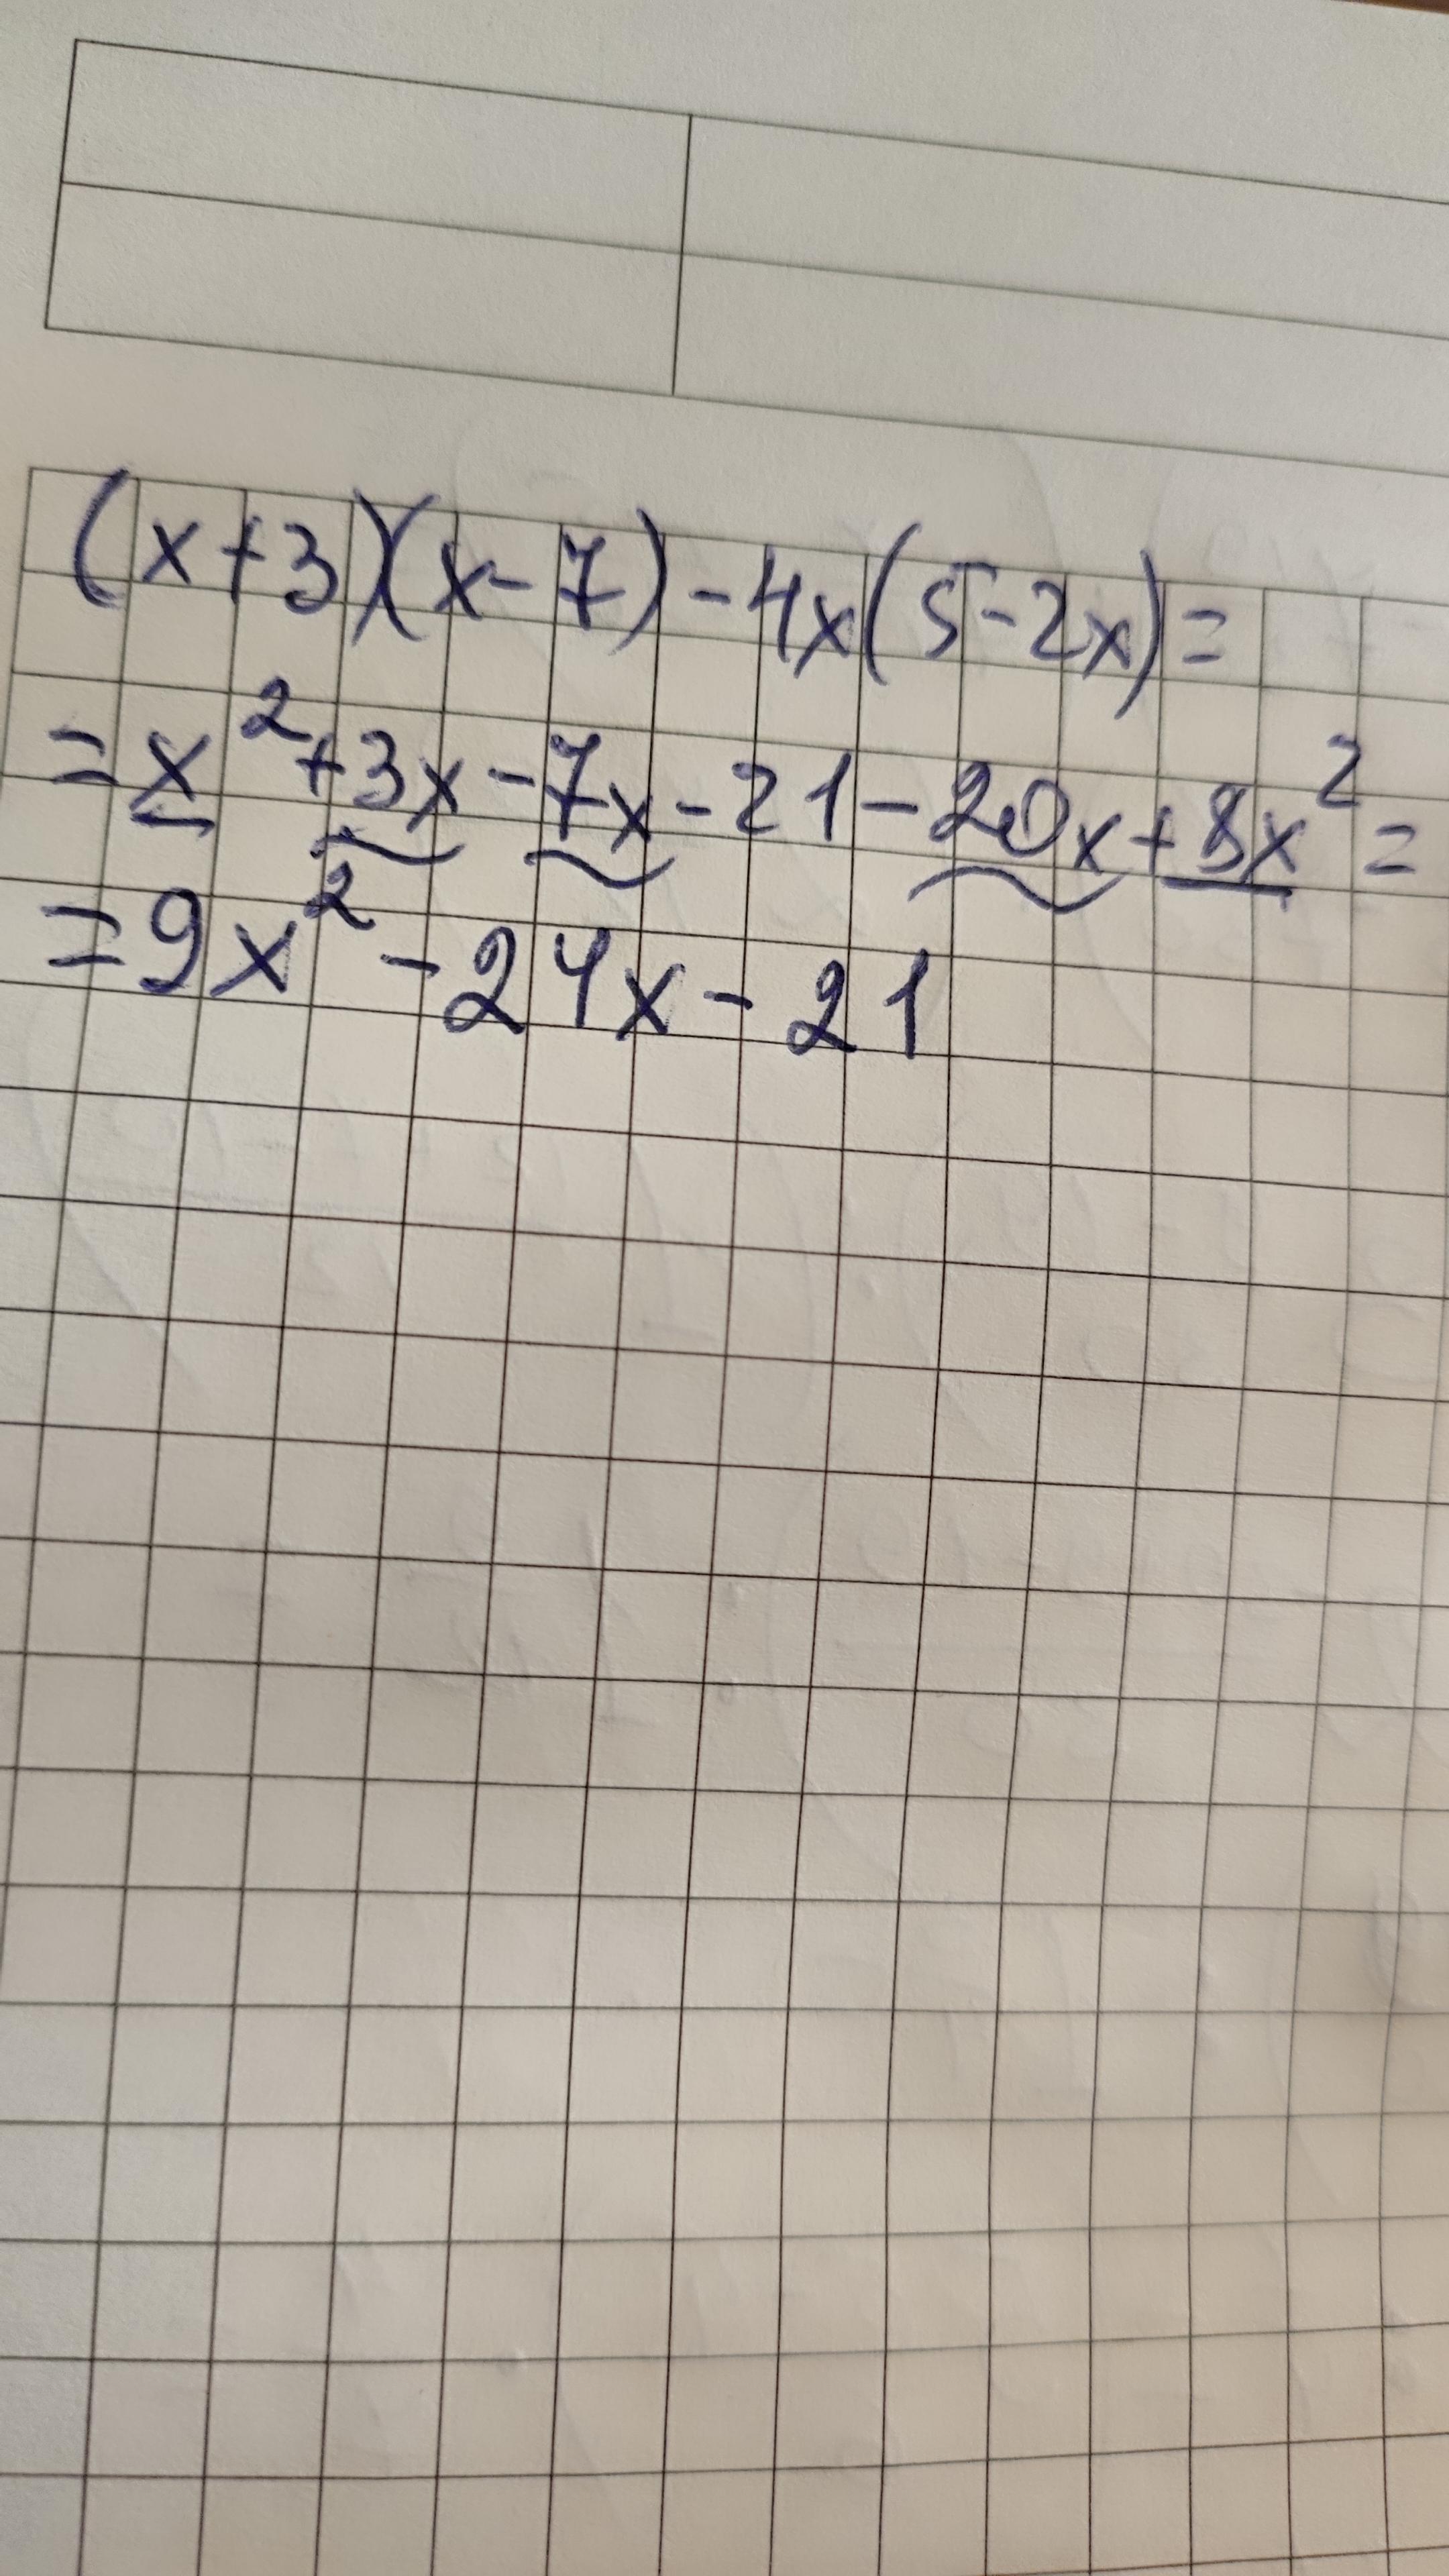 (x+3)(x-7)-4x(5-2x)=
=x²+3x-7x-21-20x+8x²=
=9x²-24x-21